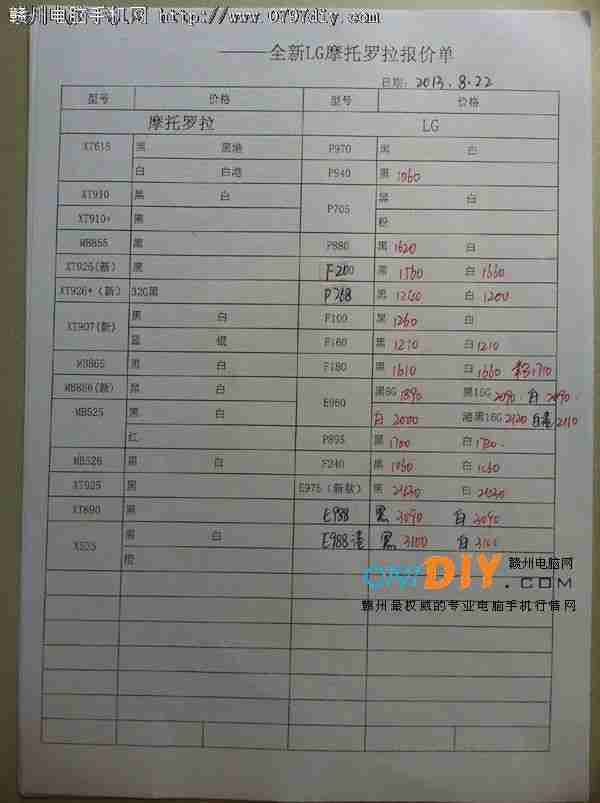 赣州电脑手机网 http://www.0797diy.com
——全新LG摩托罗拉报价单
日期: 2013.8.22
型号 价格 型号 价格
摩托罗拉 LG
XT615 黑 黑港 P970 黑 白
白 白港 P940 黑 1060
XT910 黑 白 P705 黑 白
XT910+ 黑 粉
MB855 黑 P880 黑 1620 白
XT925(新) 黑 F200 黑 1560 白 1660
XT926+(新) 32G黑 P768 黑 1200 白 1200
XT907(新) 黑 白 F100 黑 1260 白
蓝 银 F160 黑 1210 白 1210
MB865 黑 白 F180 黑 1610 白 1660 1710
MB886(新) 黑 白 E960 黑8G 1890 黑16G 2090 白 2090
MB525 黑 白 白 2000 港黑16G 2120 白港 2110
红 P895 黑 1700 白 1700
MB526 黑 白 F240 黑 白
XT925 黑 E975(新款) 黑 白
XT890 黑 E988 黑 3090 白 3090
X535 黑 白 E988港 黑 3100 白 3100
橙
DIY 赣州电脑网
.COM
赣州最权威的专业电脑手机行情网